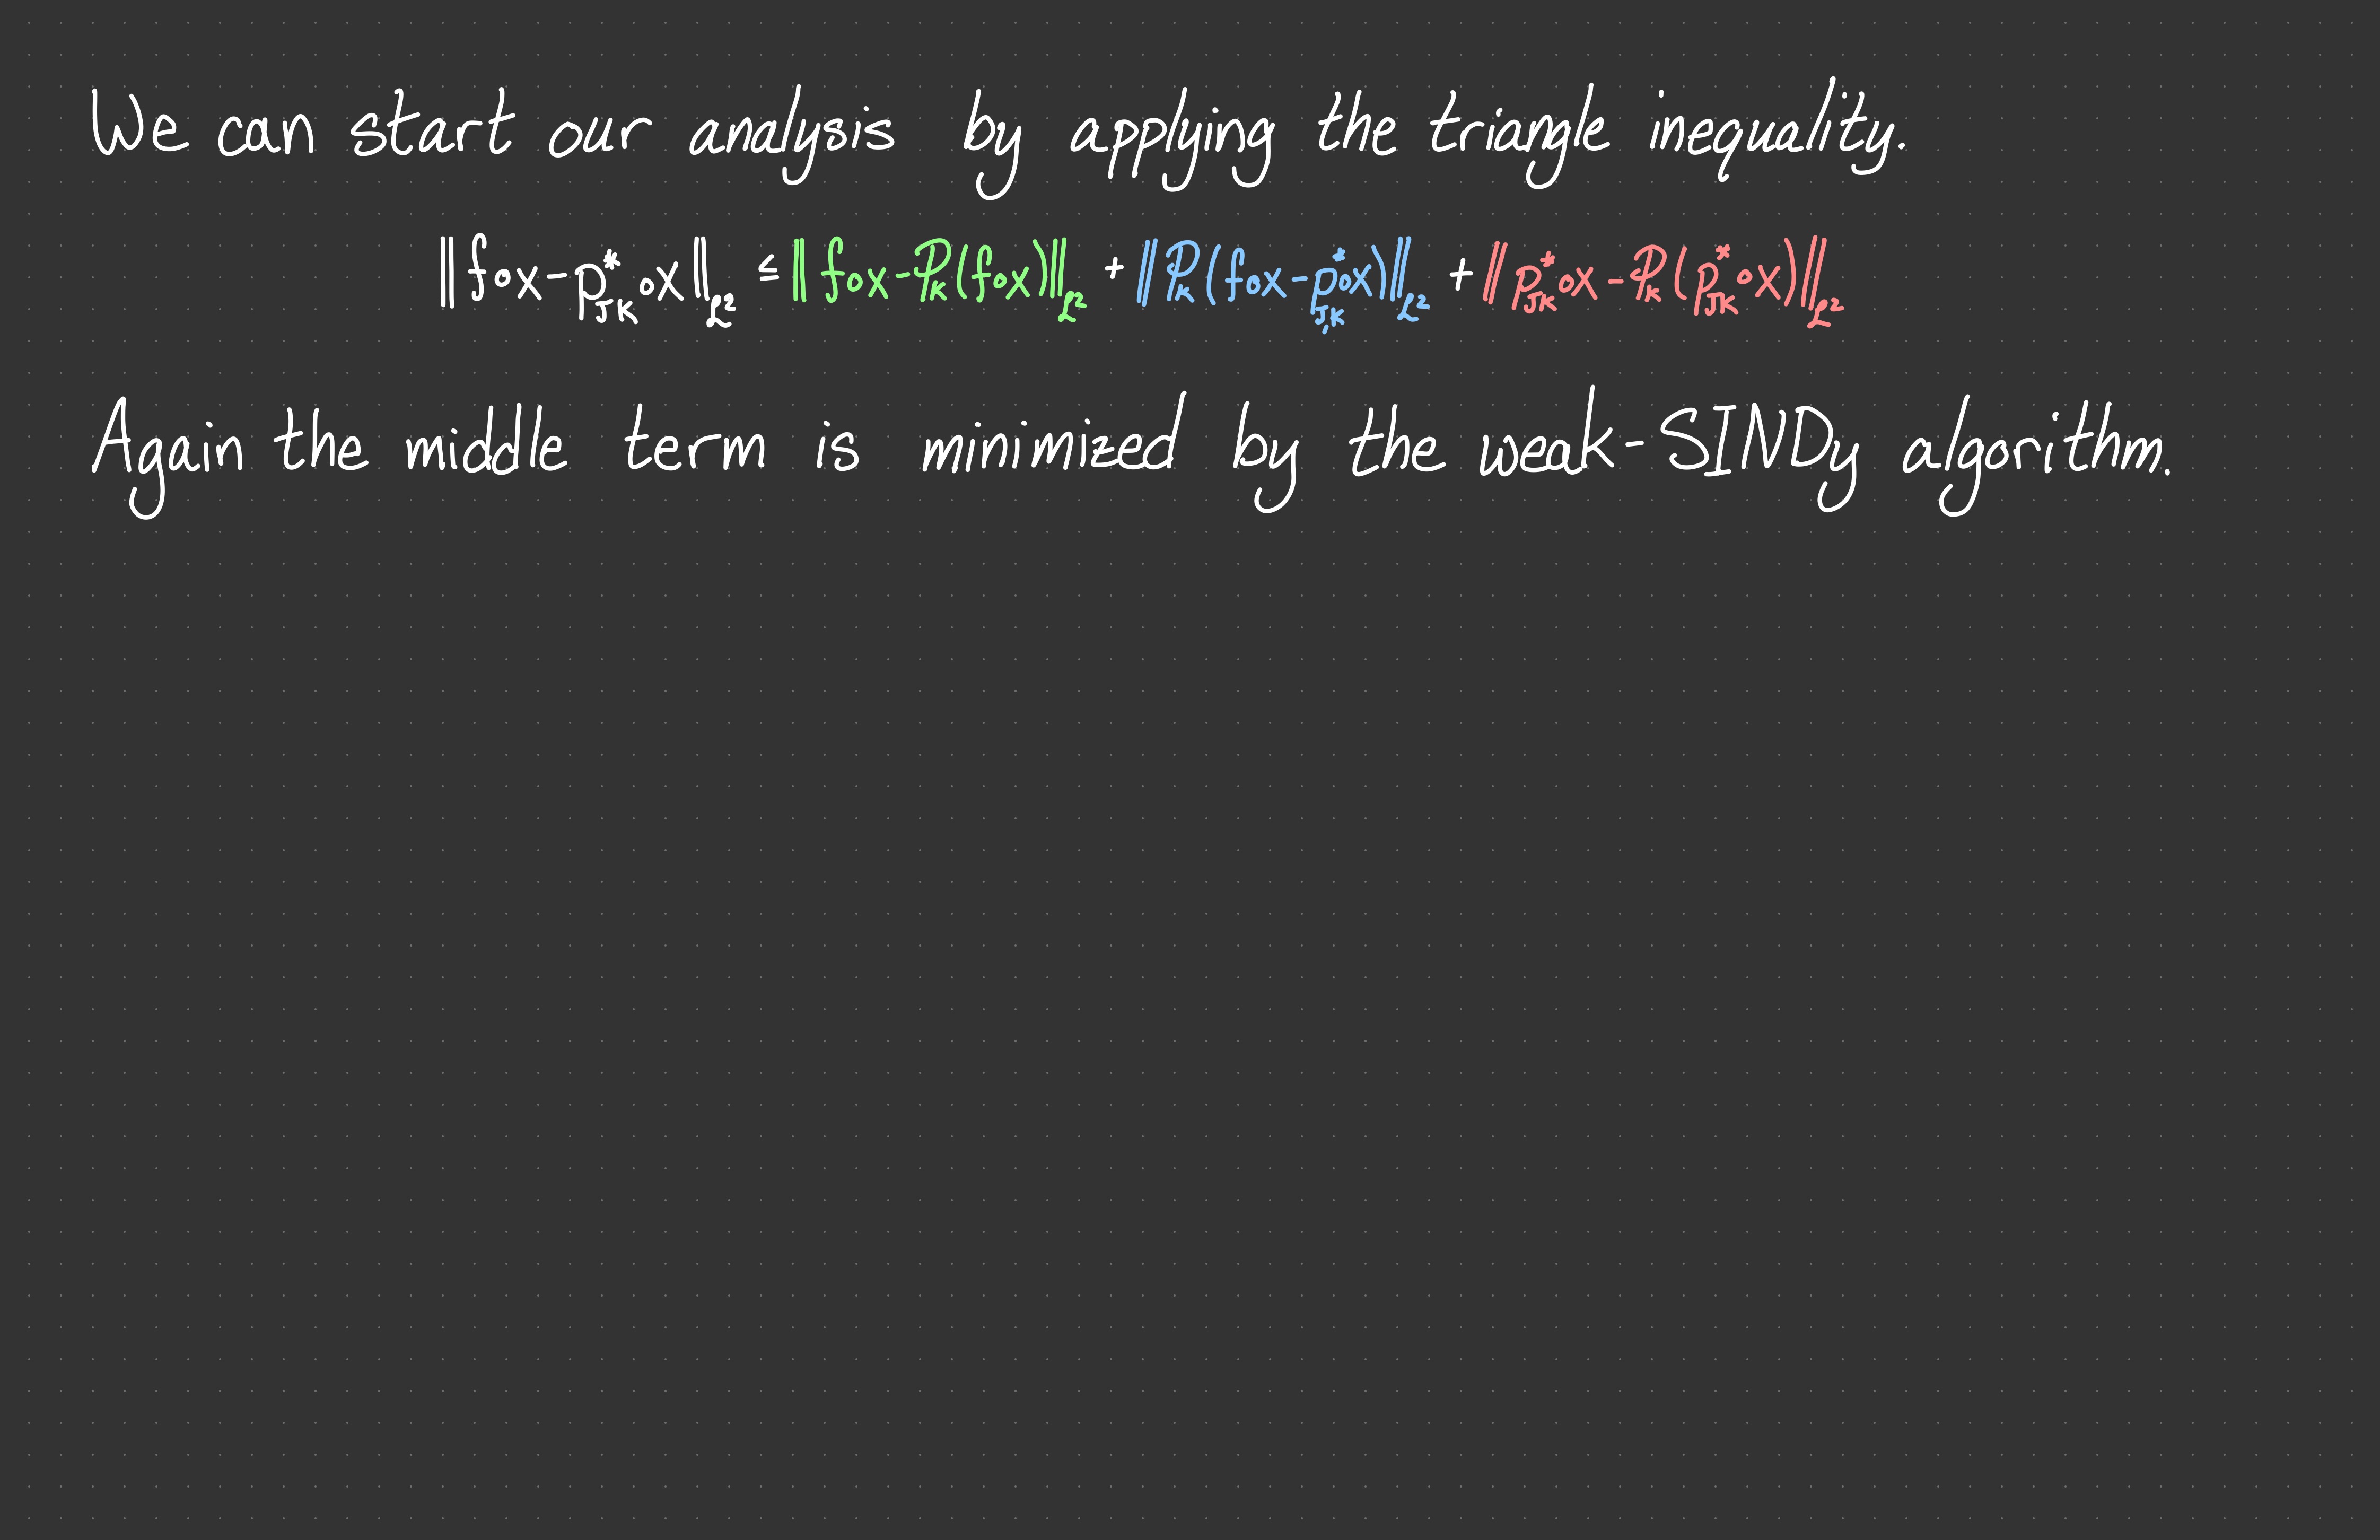 We can start our analysis by applying the triangle inequality.
‖f∘x-p*_{J,K}∘x‖_{L²} ≤ ‖f∘x-P_K(f∘x)‖_{L²} + ‖P_K(f∘x-p*_{J,K}∘x)‖_{L²} + ‖p*_{J,K}∘x-P_K(p*_{J,K}∘x)‖_{L²}
Again the middle term is minimized by the weak-SINDy algorithm.